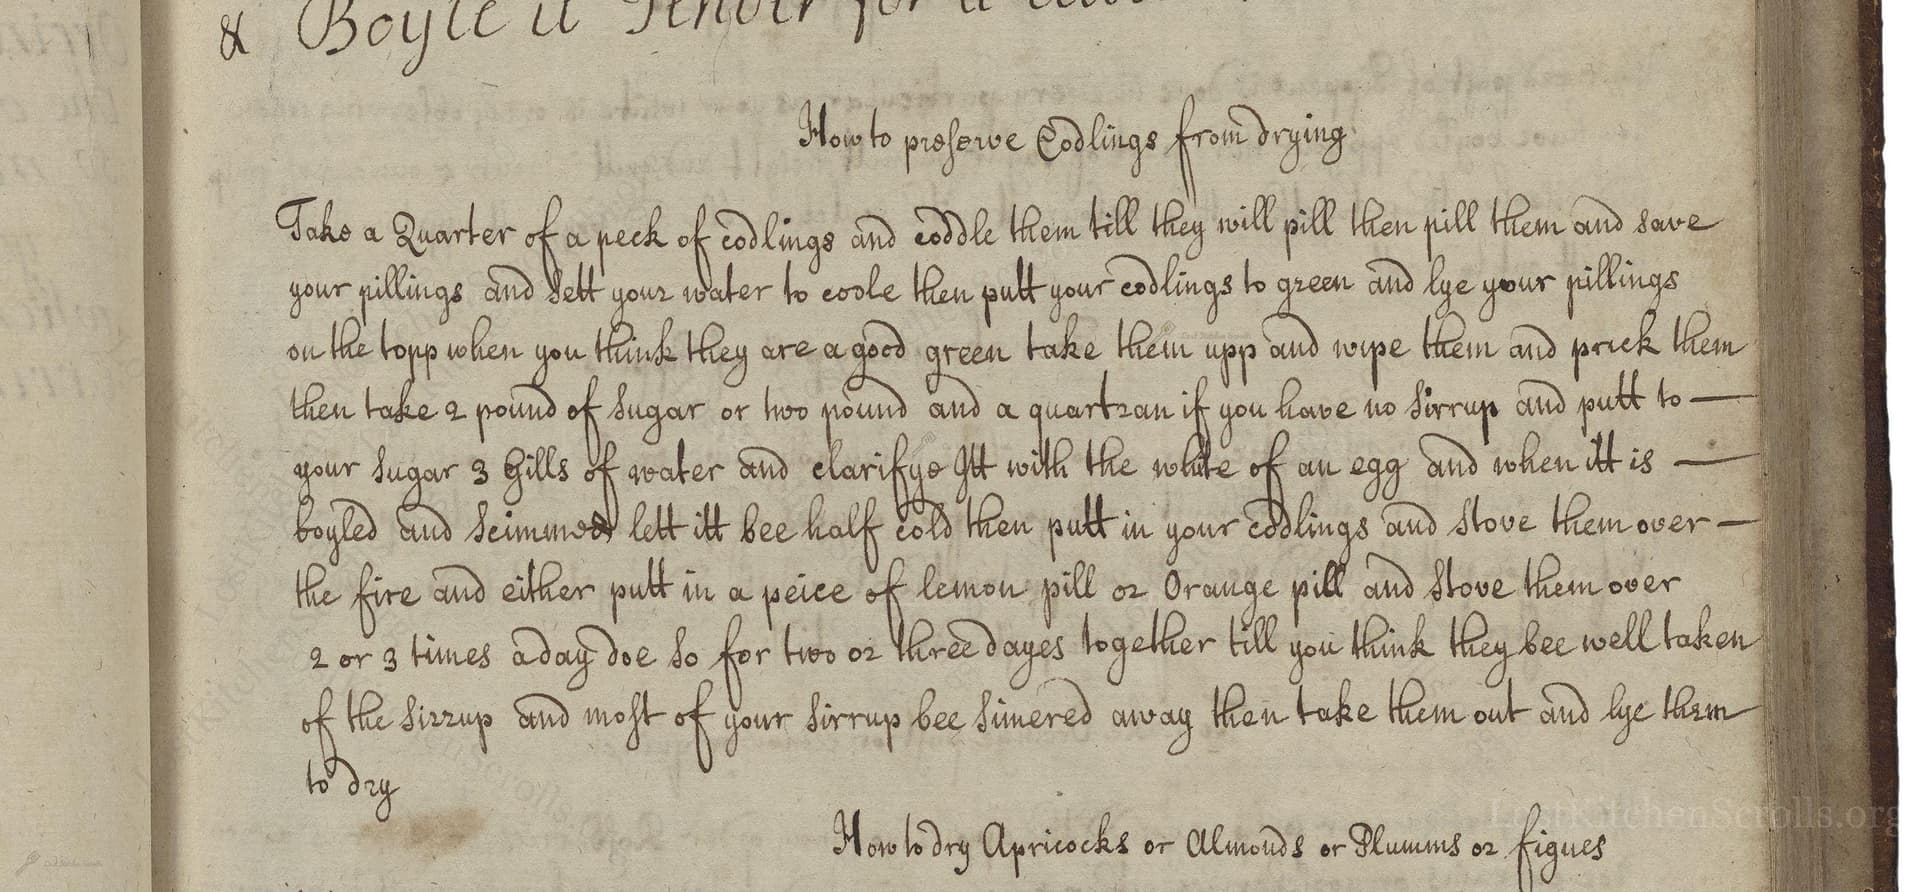 & Boyle it Tender for a
How to preserve Codlings from drying
Take a Quarter of a peck of codlings and coddle them till they will pill then pill them and save
your pillings and sett your water to coole then putt your codlings to green and lye your pillings
on the topp when you think they are a good green take them upp and wipe them and prick them
then take 2 pound of sugar or two pound and a quartran if you have no sirrup and putt to —
your sugar 3 Gills of water and clarifye Itt with the white of an egg and when itt is —
boyled and scimmed lett itt bee half cold then putt in your codlings and stove them over —
the fire and either putt in a peice of lemon pill or Orange pill and stove them over
2 or 3 times a day doe so for two or three dayes together till you think they bee well taken
of the sirrup and most of your sirrup bee simered away then take them out and lye them
to dry
How to dry Apricocks or Almonds or Plumms or figues
LostKitchenScrolls.org